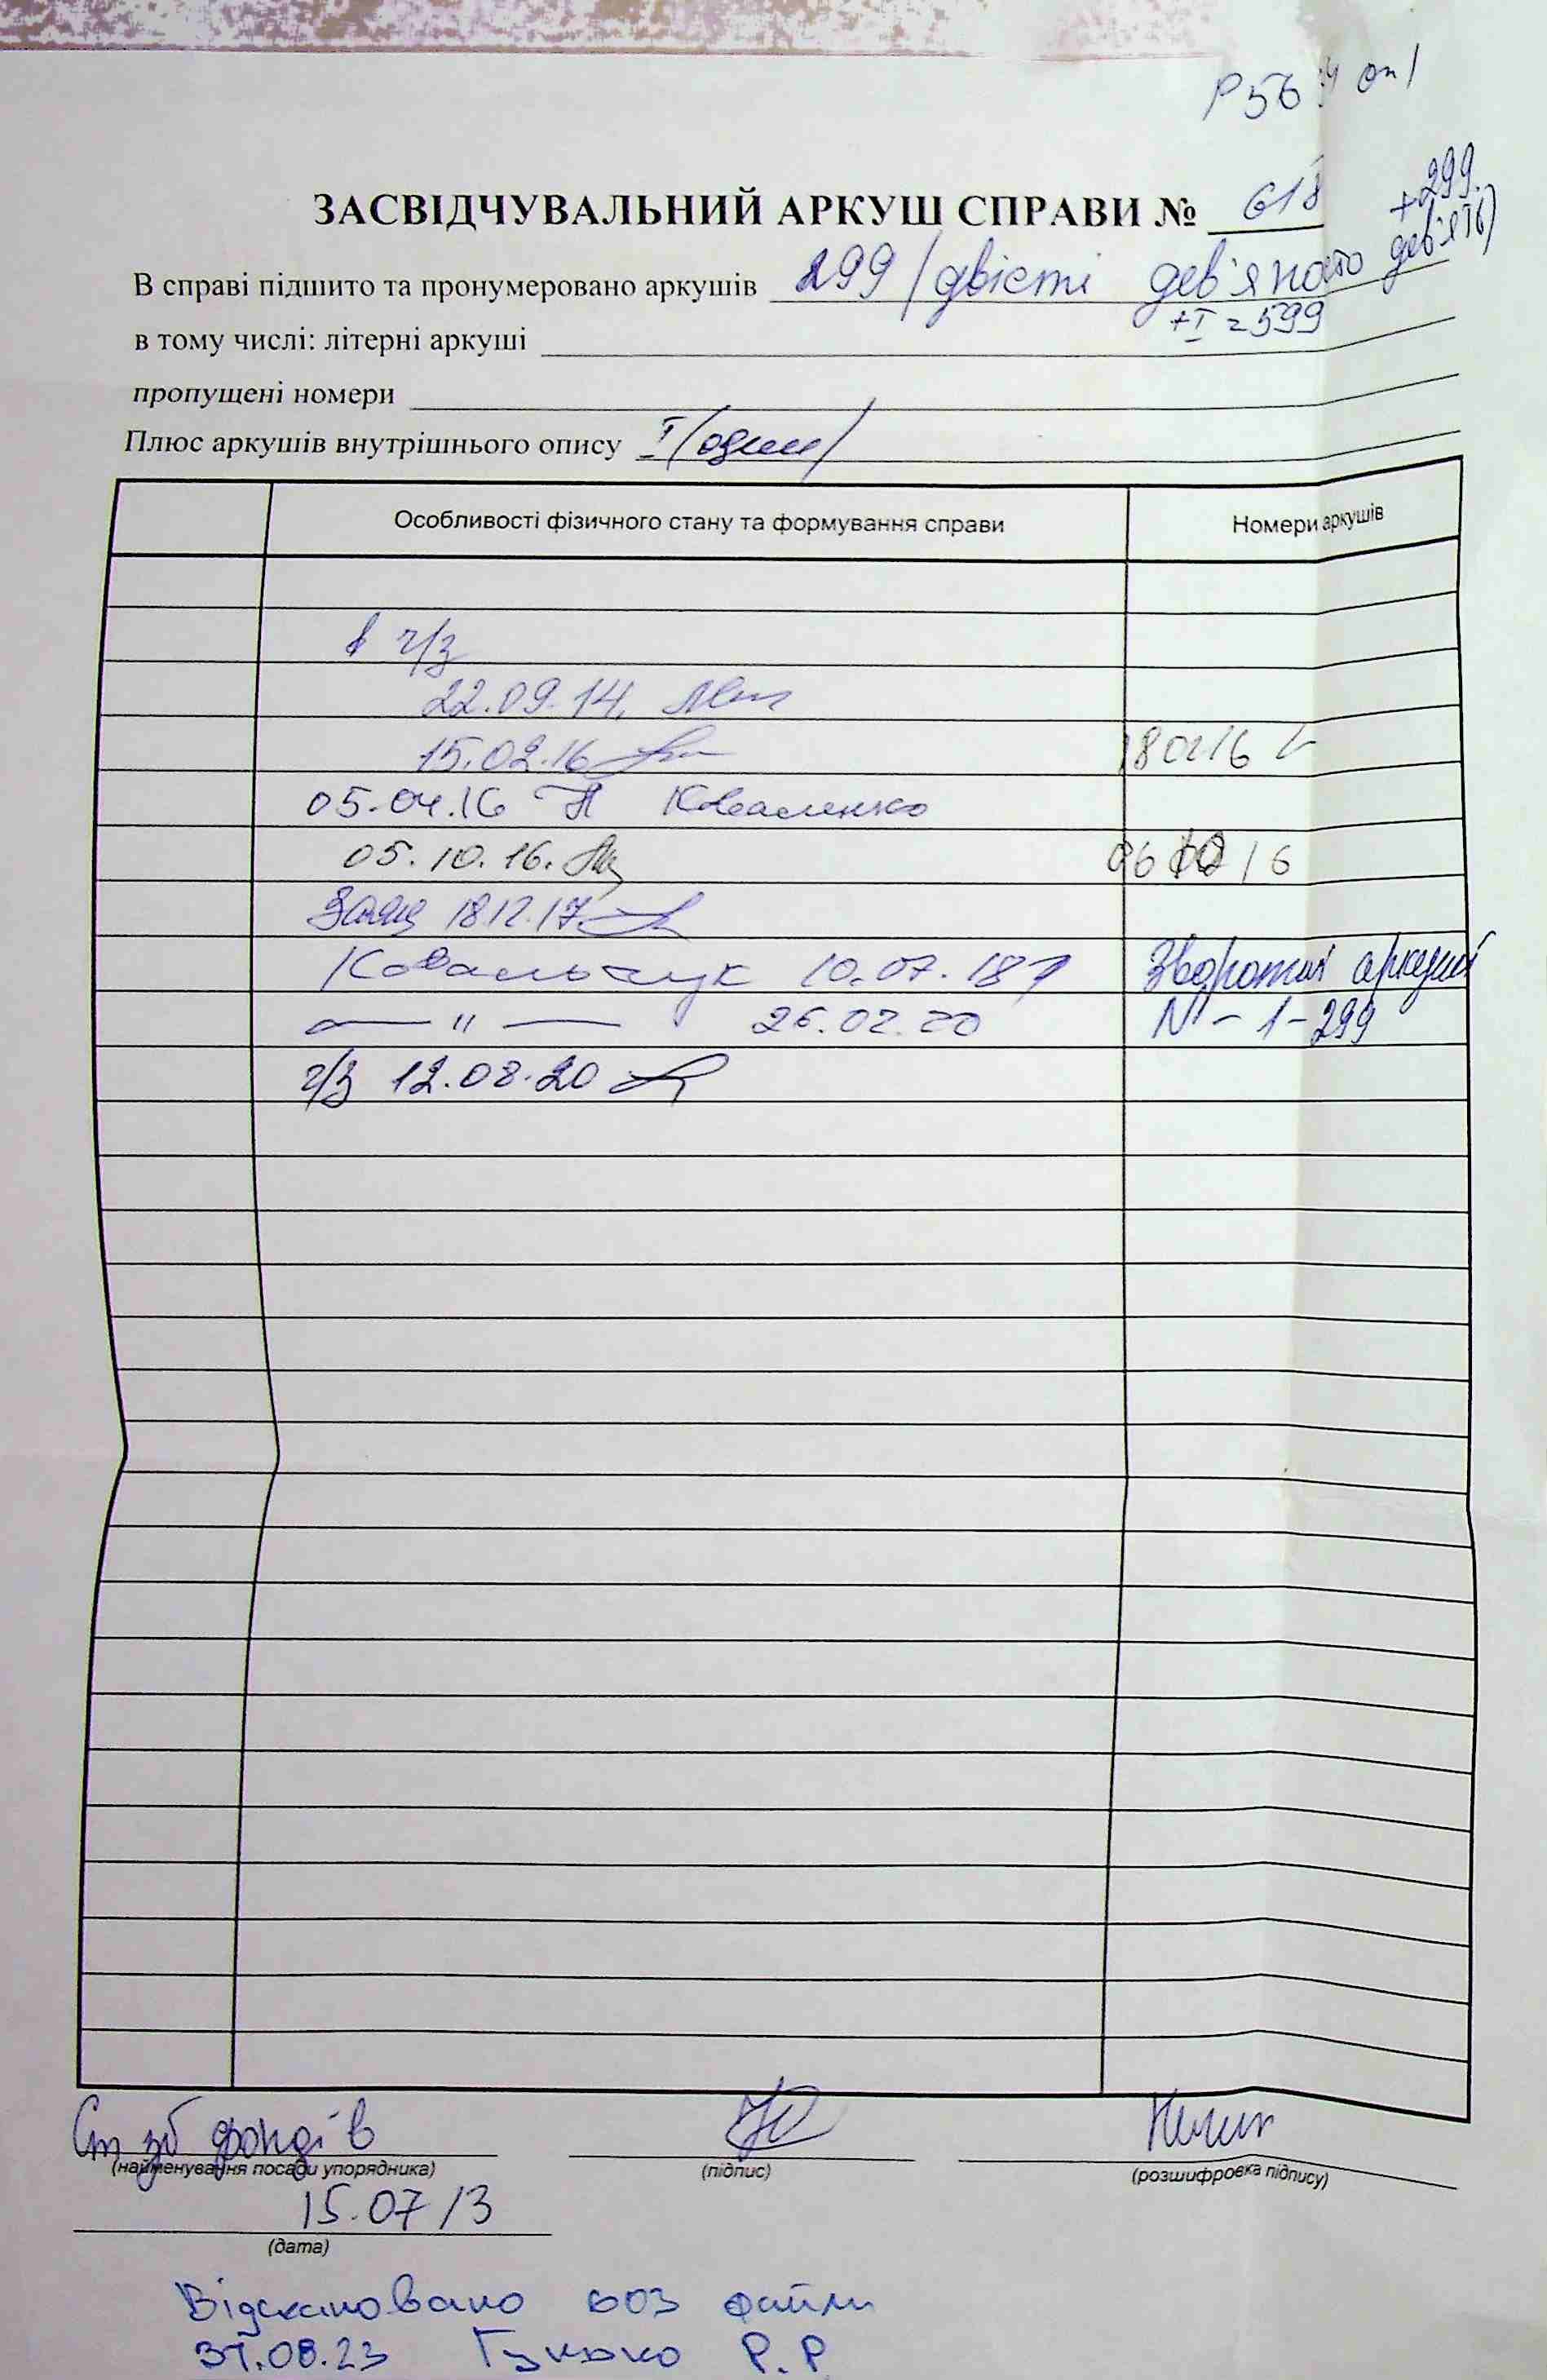 Р56 оп 1
ЗАСВІДЧУВАЛЬНИЙ АРКУШ СПРАВИ № 618
+299
В справі підшито та пронумеровано аркушів 299 / двісті дев'яносто дев'ять)
+I = 599
в тому числі: літерні аркуші
пропущені номери
Плюс аркушів внутрішнього опису I (один)
Особливості фізичного стану та формування справи Номери аркушів
в ч/з
22.09.14.
15.02.16 180216
05.04.16 Коваленко
05.10.16. 16
Заяц 18.12.17.
Ковальчук 10.07.18 Зворотні аркуші
— " — 26.02.20 N – 1-299
ч/з 12.08.20
Ст зб фондів
(найменування посади упорядника) (підпис) (розшифровка підпису)
15.07 13
(дата)
Відскановано 603 файли
31.08.23 Р.Р